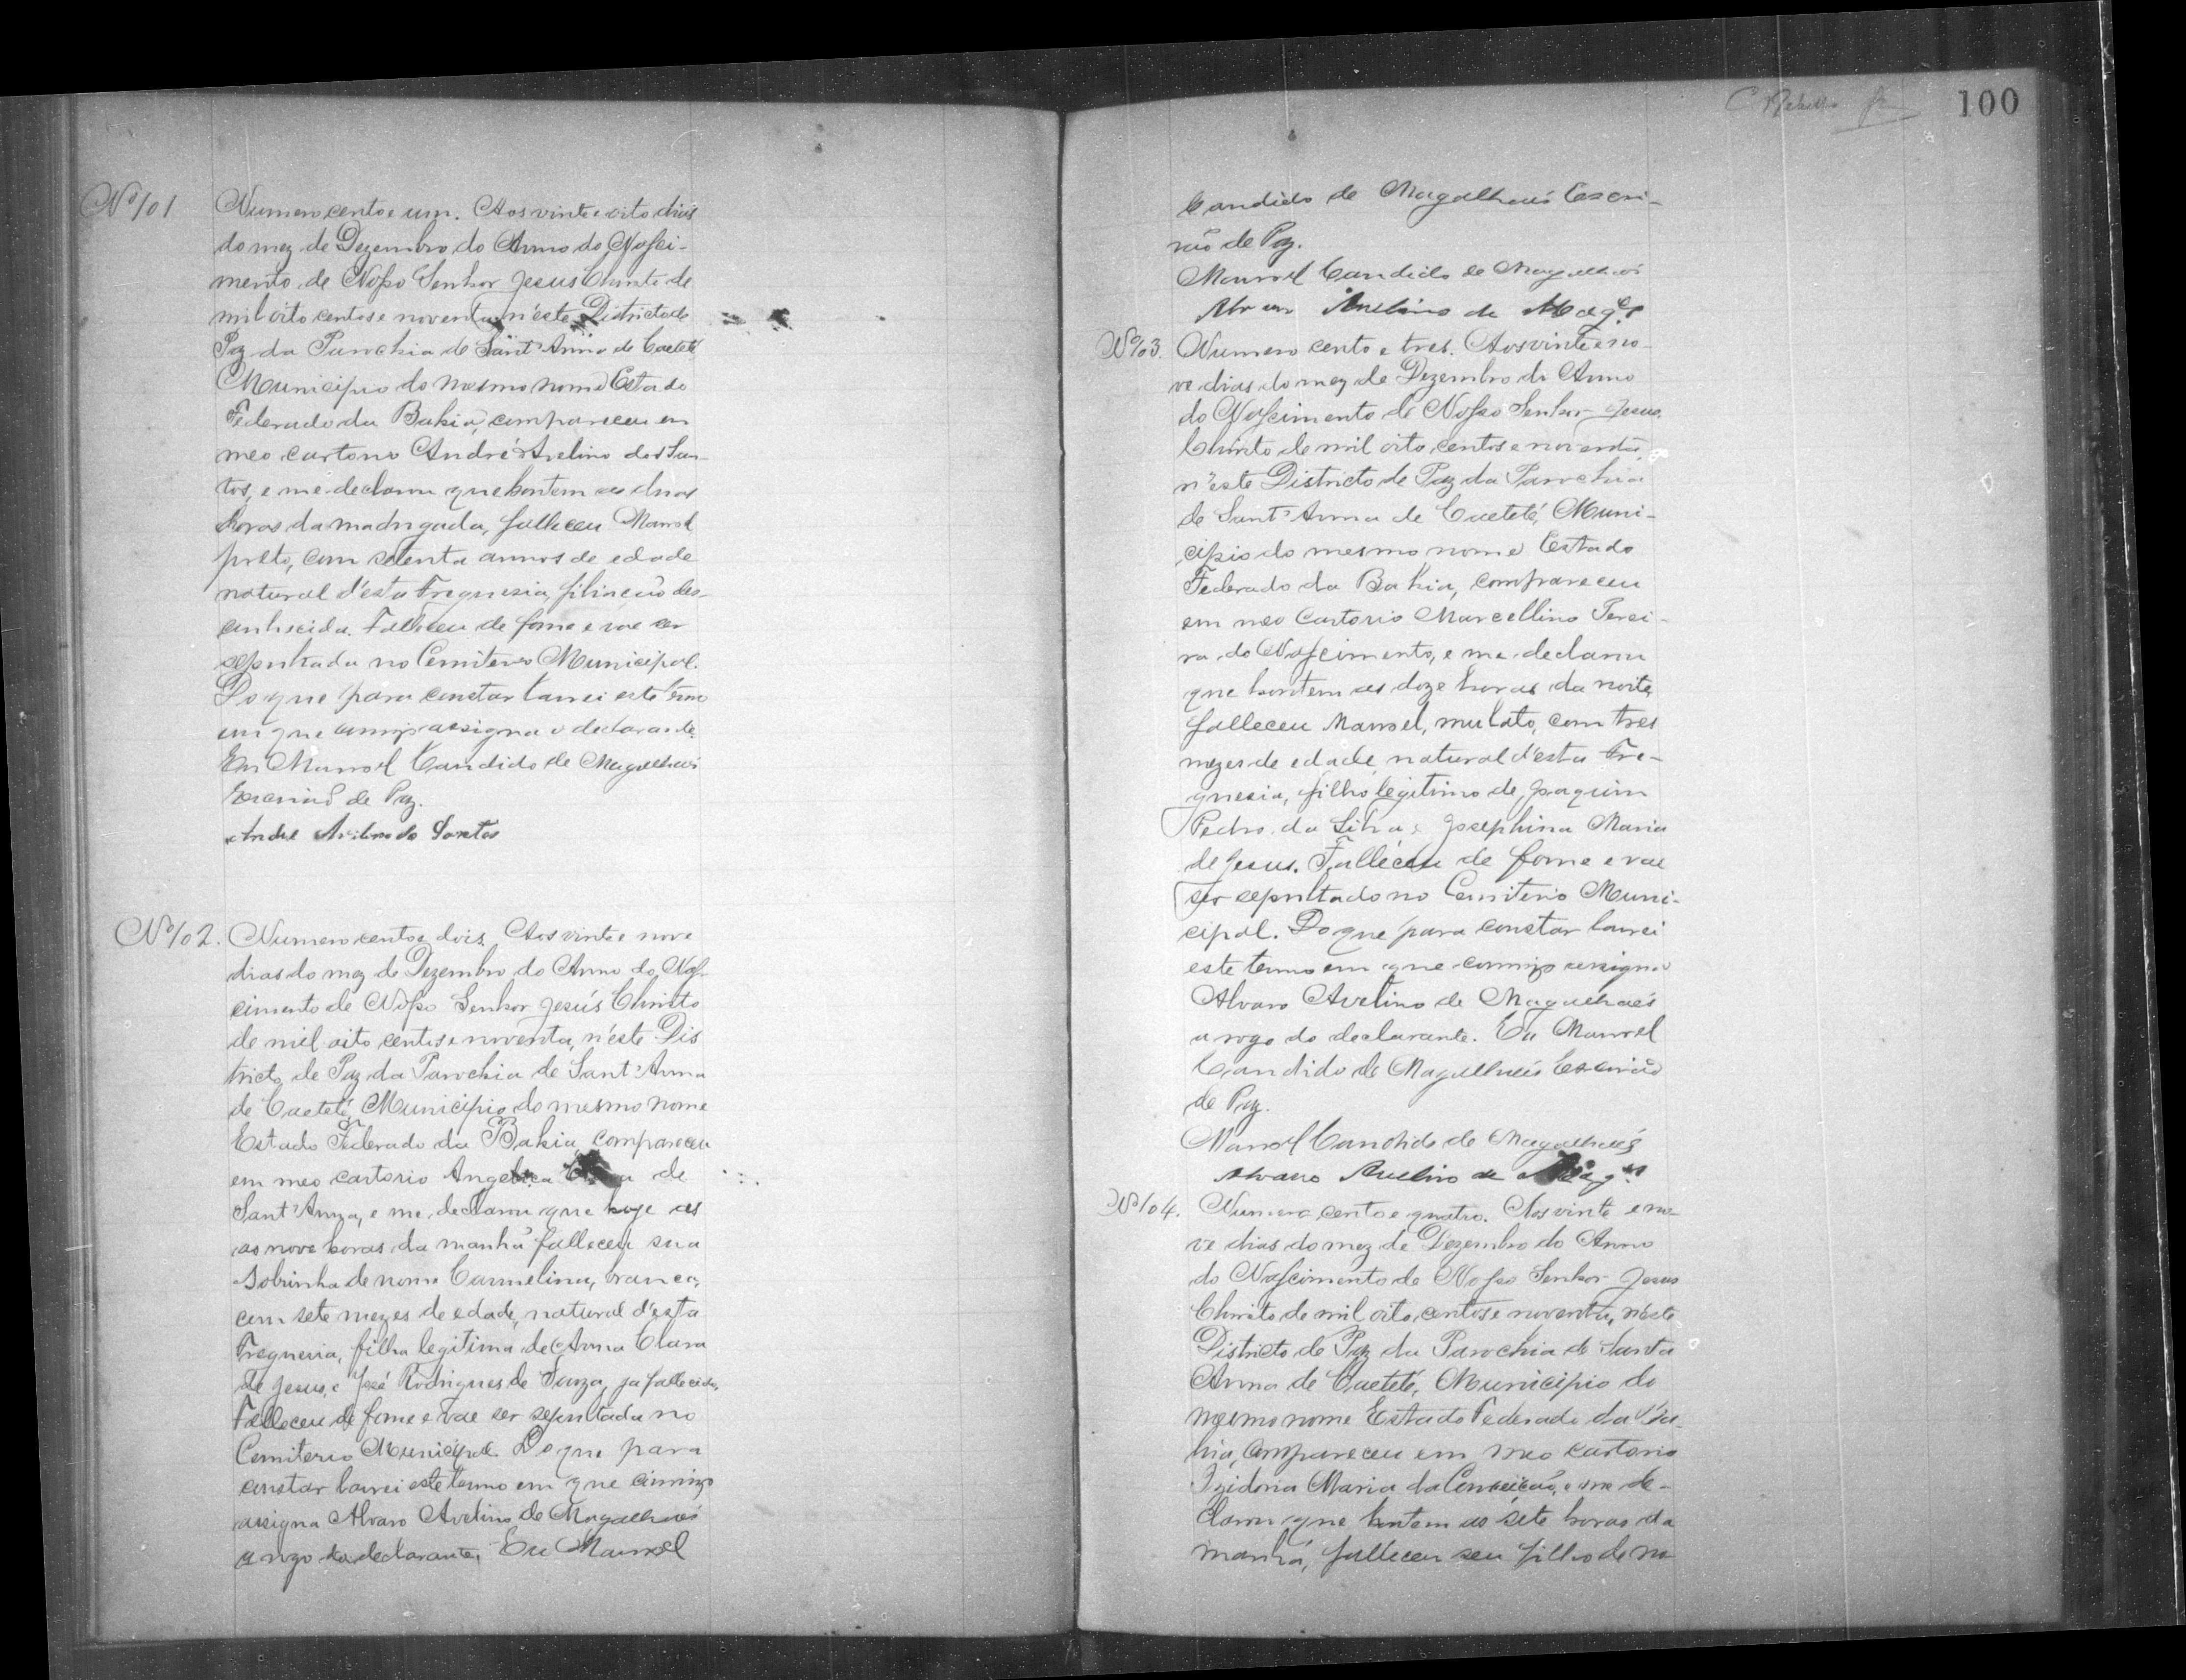 Nº 101
Numero cento e um. Aos vinte e oito dias
do mez de Dezembro do Anno do Nasci-
mento de Nosso Senhor Jesus Christo de
mil oito centos e noventa, n'éste Districto de
Paz da Parochia de Sant'Anna de Caeteté
Municipio do mesmo nome Estado
Federado da Bahia, compareceu em
meo cartorio André Avelino dos San-
tos, e me declarou que hontem as duas
horas da madrugada, falleceu Manoel
preto, com setenta annos de edade
natural d'esta Freguesia, filiação des-
conhecida. Falleceu de fome e vae ser
sepultada no Cemiterio Municipal.
Do que para constar lavrei este termo
em que comigo assigna o declarante.
Eu Manoel Candido de Magalhães
Escrivão de Paz.
Andre Avelino do Santos
Nº 102.
Numero cento e dois. Aos vinte e nove
dias do mez de Dezembro do Anno do Nas-
cimento de Nosso Senhor Jesús Christo
de mil oito centos e noventa, n'éste Dis
tricto de Paz da Parochia de Sant'Anna
de Caeteté, Municipio do mesmo nome
Estado Federado da Bahia, compareceu
em meo cartorio Angelica de
Sant'Anna, e me declarou que hoje as
as nove horas da manhã falleceu sua
sobrinha de nome Carmelina, branca,
com sete mezes de edade, natural d'esta
Freguesia, filha legitima de Anna Clara
de Jesus, e José Rodrigues de Souza, ja fallecido,
Falleceu de fome e vae ser sepultada no
Cemiterio Municipal. Do que para
constar lavrei este termo em que comigo
assigna Alvaro Avelino de Magalhães
a rogo da declarante. Eu Manoel
100
Candido de Magalhães Escri-
vão de Paz.
Manoel Candido de Magalhães
Alvaro Avelino de Mag.es
Nº 103.
Numero cento e tres. Aos vinte e no-
ve dias do mez de Dezembro do Anno
do Nascimento de Nosso Senhor Jesus
Christo de mil oito centos e noventa,
n'éste Districto de Paz da Parochia
de Sant'Anna de Caeteté, Muni-
cipio do mesmo nome Estado
Federado da Bahia, compareceu
em meo Cartorio Marcellino Perei-
ra do Nascimento, e me declarou
que hontem as doze horas da noite,
falleceu Manoel, mulato, com tres
mezes de edade, natural d'esta Fre-
guesia, filho legitimo de Joaquim
Pedro da Silva e Josephina Maria
de Jesus. Falléceu de fome e vae
ser sepultado no Cemiterio Muni-
cipal. Do que para constar lavrei
este termo em que comigo assigna
Alvaro Avelino de Magalhães
a rogo do declarante. Eu Manoel
Candido de Magalhães Escrivão
de Paz.
Manoel Candido de Magalhães
Alvaro Avelino de Mag.es
Nº 104.
Numero cento e quatro. Aos vinte e no-
ve dias do mez de Dezembro do Anno
do Nascimento de Nosso Senhor Jesus
Christo de mil oito centos e noventa, n'éste
Districto de Paz da Parochia de Santa
Anna de Caeteté, Municipio do
mesmo nome Estado Federado da Ba-
hia, compareceu em meo cartorio
Izidoria Maria da Conceição, e me de-
clarou que hontem as sete horas da
manhã, falleceu seu filho de no-